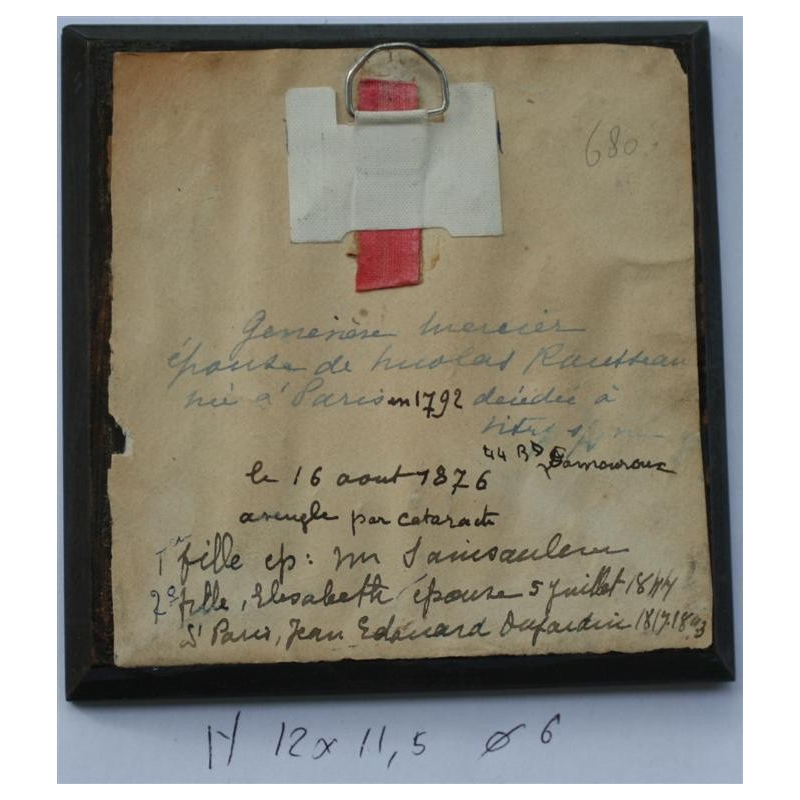 680
Genevièse Mercier
épouse de Nicolas Rousseau
née à Paris en 1792 décédée à
Vitry s/
44 Bd Lamouroux
le 16 aout 1876
aveugle par cataracte
1ère fille ep: Mr
2e fille, Elisabeth épouse 5 juillet 1844
à Paris, Jean Edouard Dujardin 1817.1893
H 12 x 11,5 ø 6